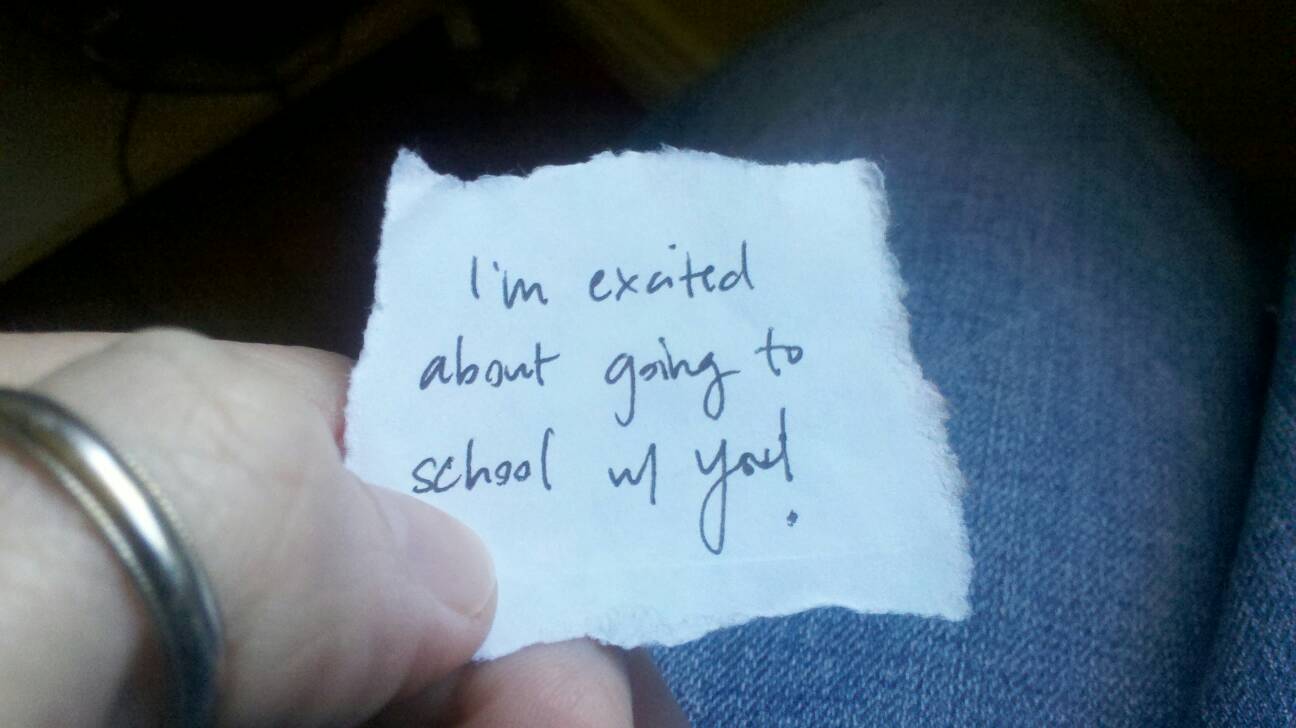 I'm excited
about going to
school w/ you!